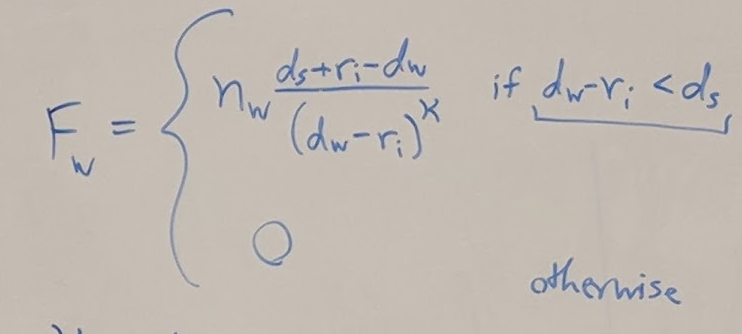 F_w = { n_w (d_s + r_i - d_w) / (d_w - r_i)^k if d_w - r_i < d_s
0 otherwise